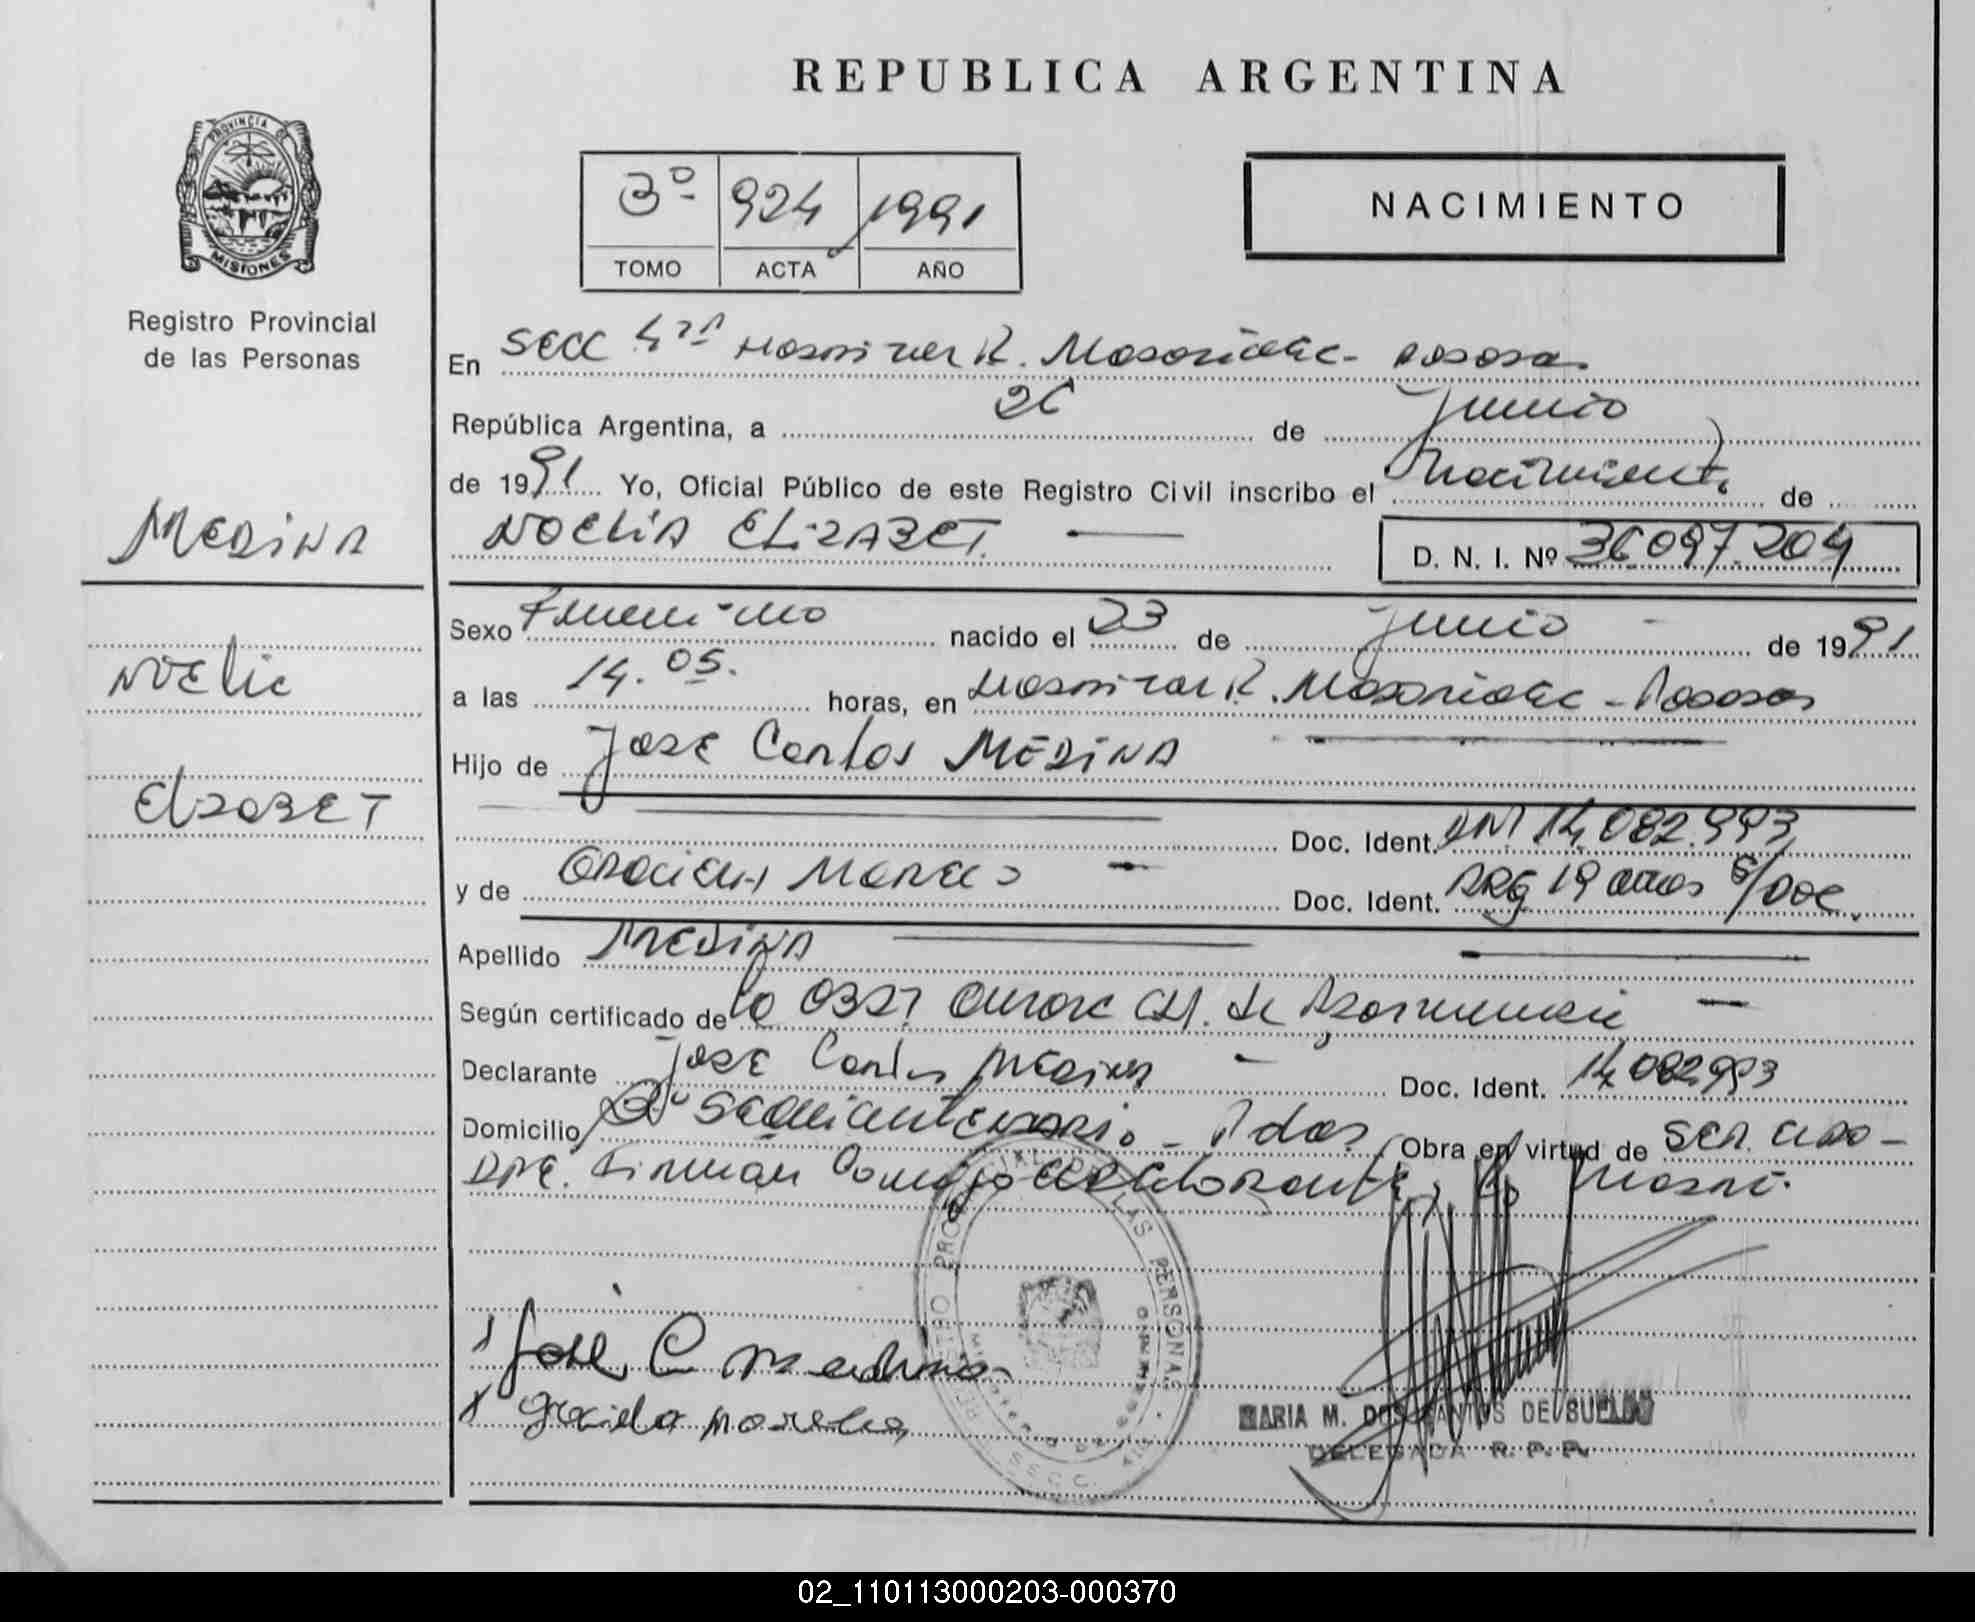 REPUBLICA ARGENTINA
PROVINCIA DE
MISIONES
Registro Provincial
de las Personas
3º 924 1991
TOMO ACTA AÑO
NACIMIENTO
En SECC 4ta R.
República Argentina, a 26 de Junio
de 1991 Yo, Oficial Público de este Registro Civil inscribo el Nacimiento de
MEDINA
NOELIA ELIZABET
D. N. I. Nº 36097.204
Sexo Femenino nacido el 23 de Junio de 1991
NOELIA
a las 14.05. horas, en R.
Hijo de JOSE Carlos MEDINA
ELIZABET
Doc. Ident. DNI 14,082.993
y de Doc. Ident. ARG 19 años S/DOC.
Apellido MEDINA
Según certificado de la
Declarante JOSE Carlos MEDINA Doc. Ident. 14,082993
Domicilio Obra en virtud de
Firman
REGISTRO PROVINCIAL DE LAS PERSONAS
SECC.
José C Medina
Graciela
MARIA M. DOS SANTOS DE SUELDO
DELEGADA R. P. P.
02_110113000203-000370